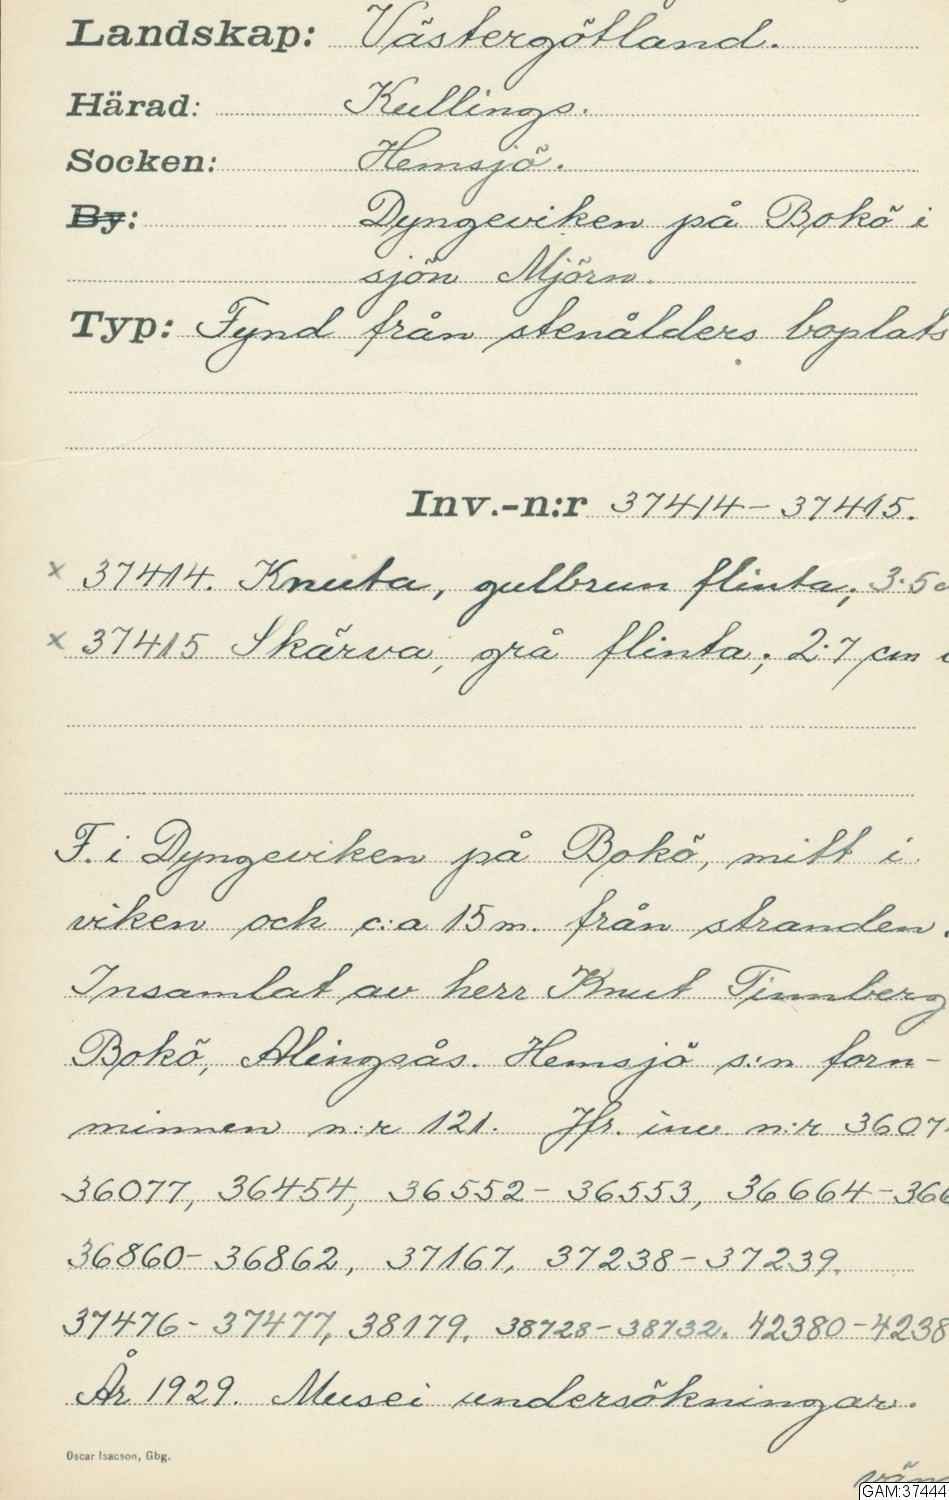 Landskap: Västergötland.
Härad: Kullings.
Socken: Hemsjö.
By: Dyngeviken på Bokö i
sjön Mjörn.
Typ: Fynd från stenålders boplats
Inv.-n:r 37414-37415.
x 37414. Knuta, gulbrun flinta; 3.5 c
x 37415 Skärva, grå flinta; 2.7 cm
F. i Dyngeviken på Bokö, mitt i
viken och c:a 15 m. från stranden.
Insamlat av herr Knut Tinnberg
Bokö, Alingsås. Hemsjö s:n forn-
minnen n:r 121. Jfr. inv. n:r 3607
36077, 36454, 36552-36553, 36664-366
36860-36862, 37167, 37238-37239.
37476-37477, 38179. 38728-38732. 42380-4238
År 1929. Musei undersökningar.
Oscar Isacson, Gbg.
vän
GAM:37444